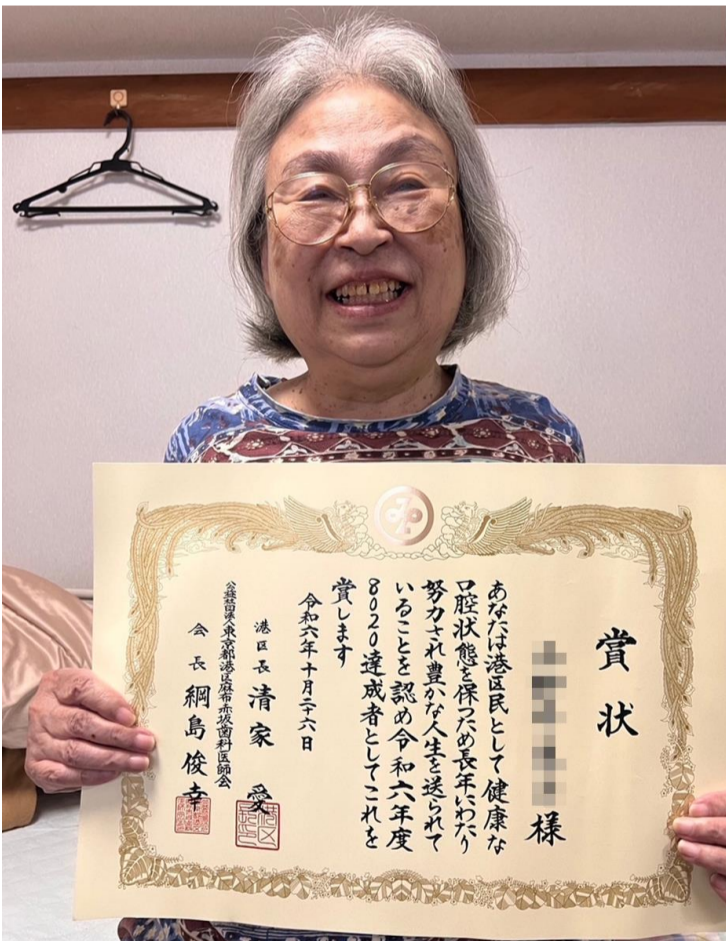 賞状
様
あなたは港区民として健康な
口腔状態を保つため長年にわたり
努力され豊かな人生を送られて
いることを認め令和六年度
8020達成者としてこれを
賞します
令和六年十月二十六日
港区長 清家 愛
公益社団法人東京都港区麻布赤坂歯科医師会
会長 綱島俊幸